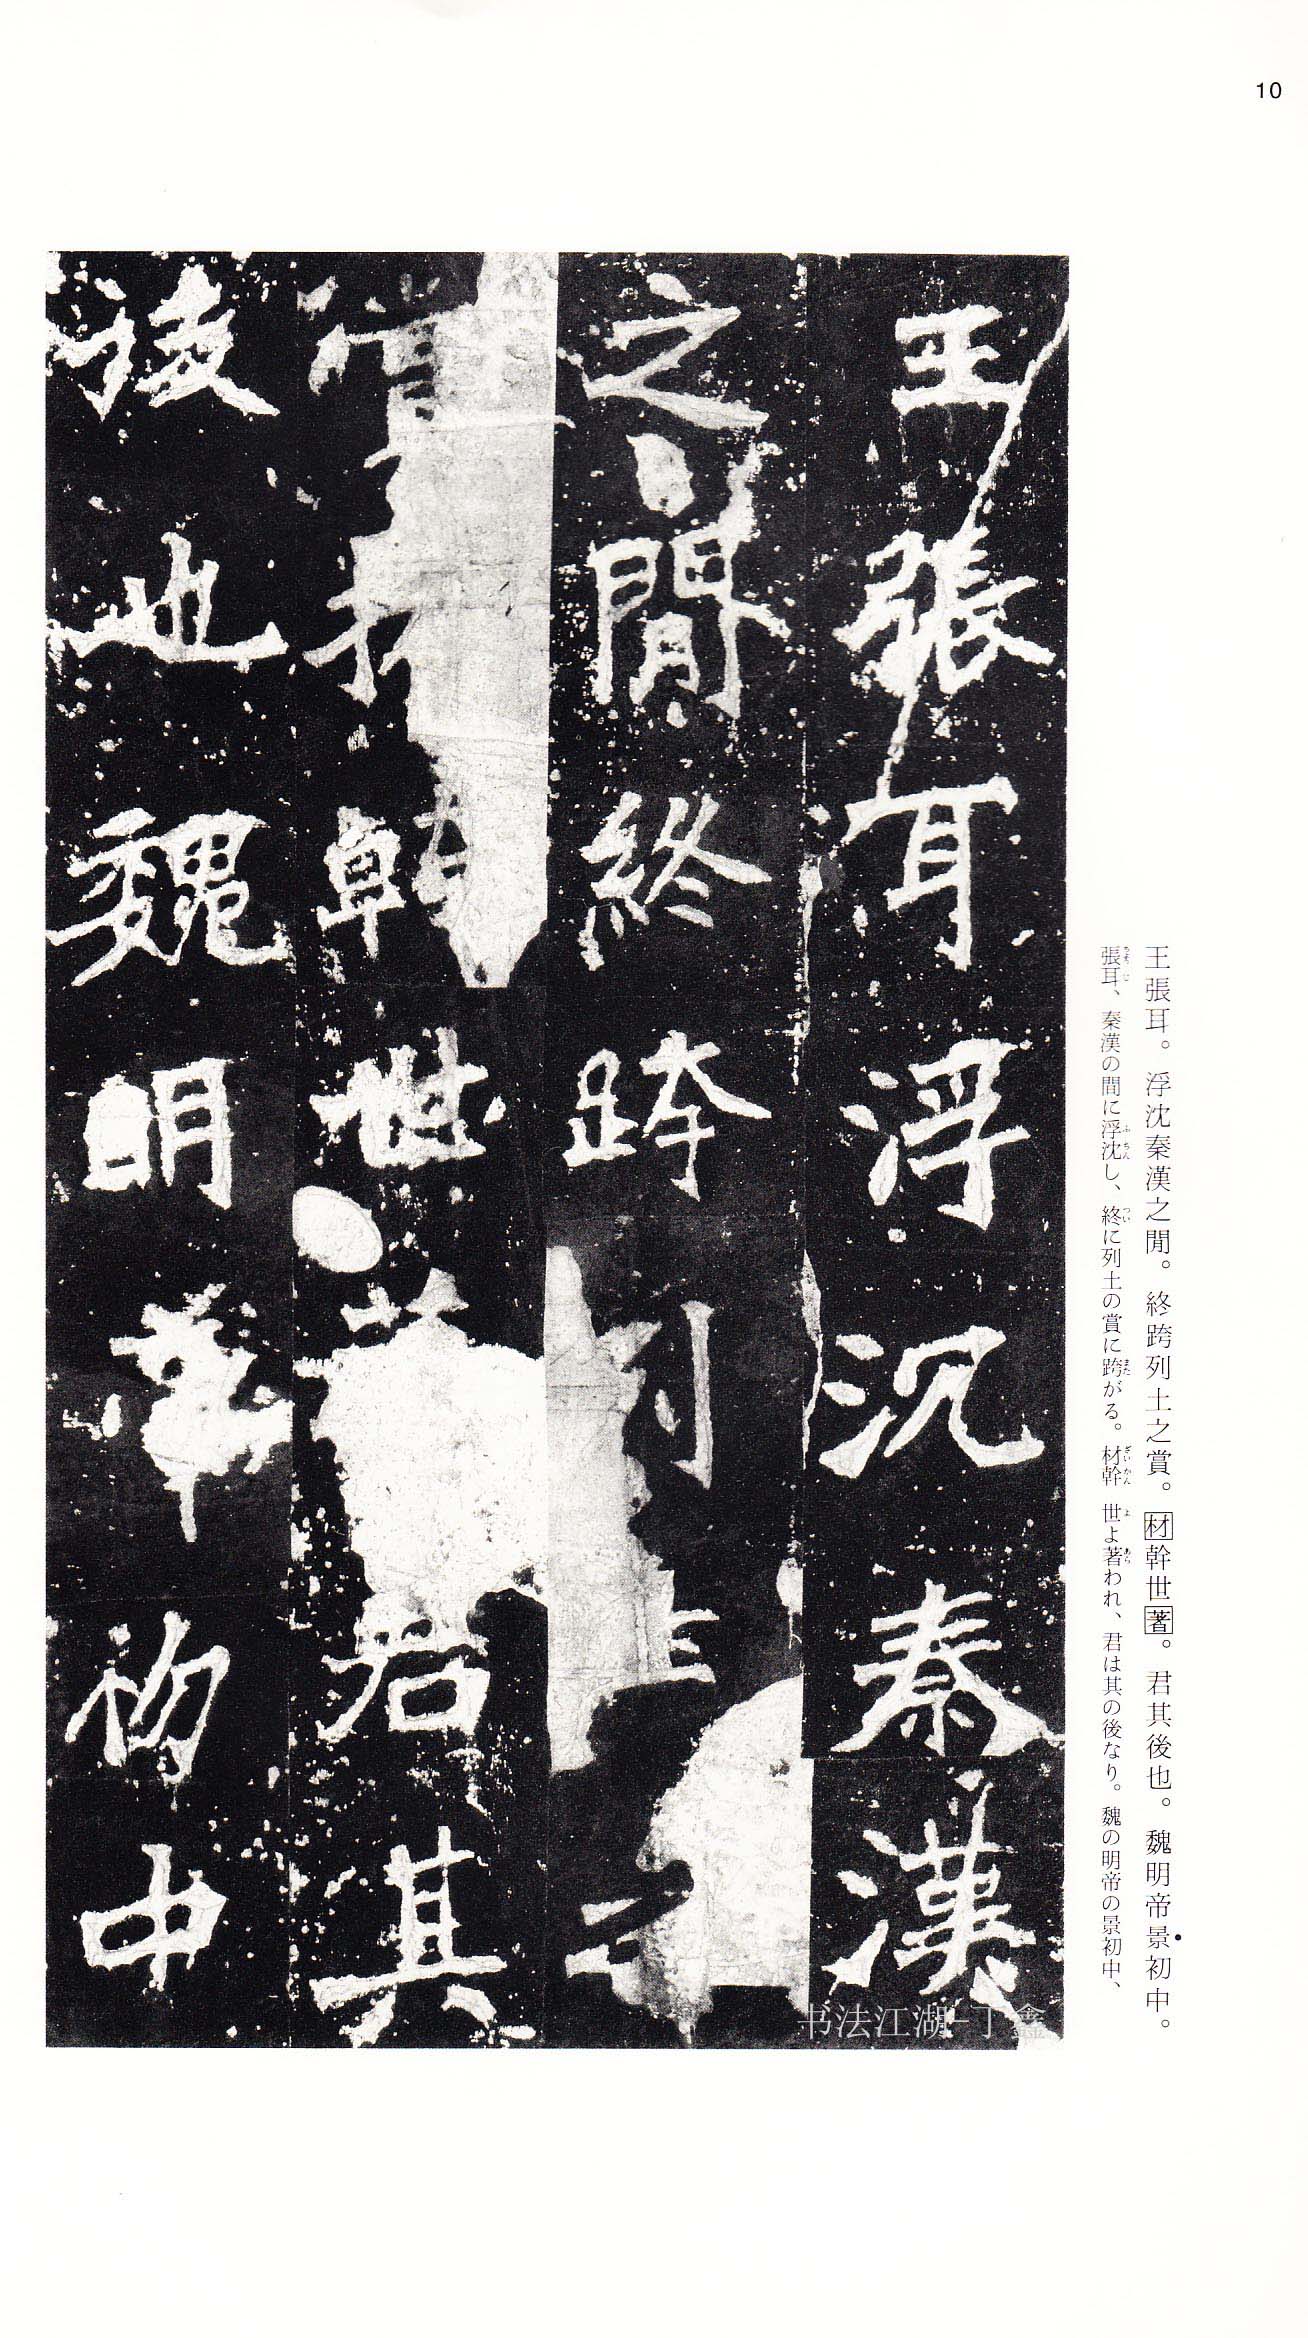 10
王張耳。浮沈秦漢之閒。終跨列土之賞。材幹世著。君其後也。魏明帝景初中。
張耳、秦漢の間に浮沈し、終に列土の賞に跨がる。材幹 世よ著われ、君は其の後なり。魏の明帝の景初中、
王張耳浮沉秦漢
之閒終跨列土之
賞材幹世著君其
後也魏明帝初中
书法江湖-丁鑫